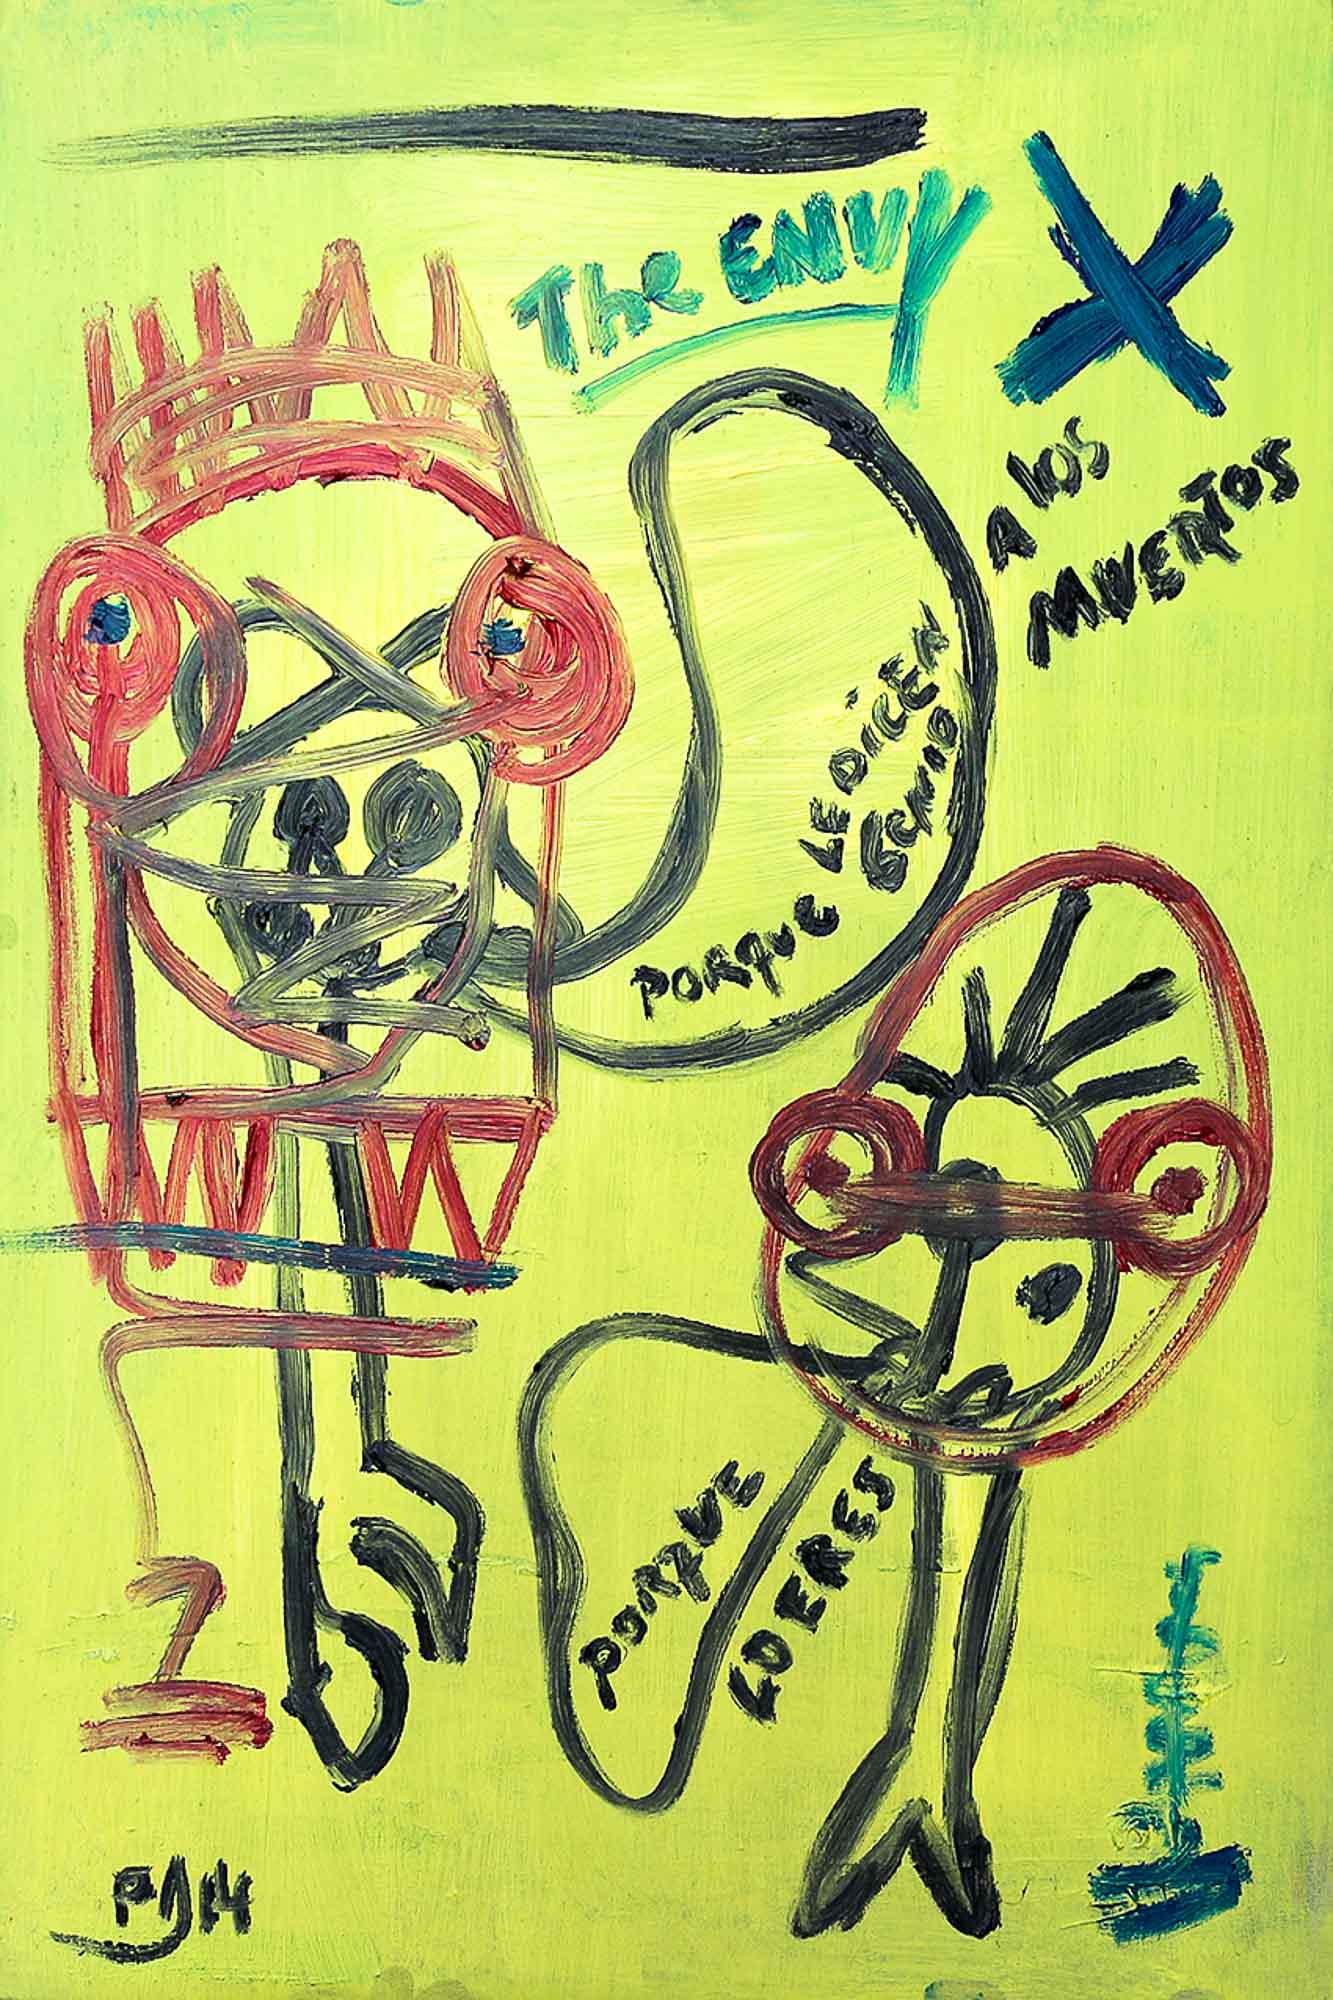 The ENVY
X
A LOS
MUERTOS
PORQUE LE DICEN
GENIO
PORQUE
LOERES